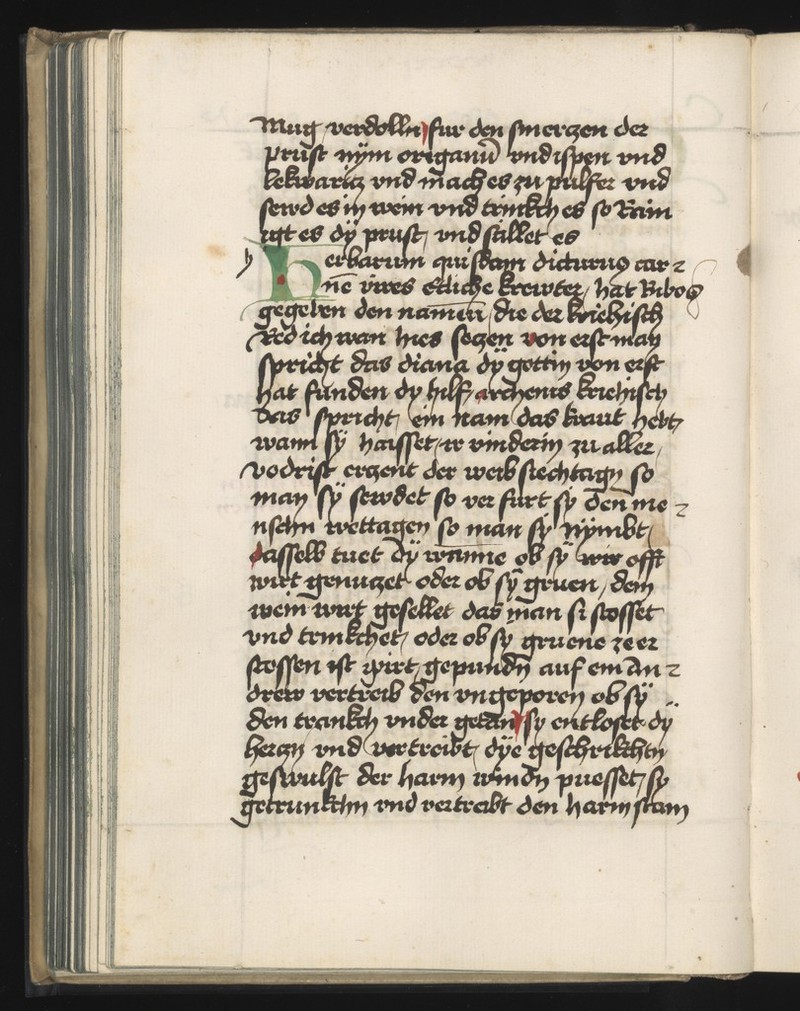 Mug verdolln fur den smerczen der
prust nym origanū vnd ispen vnd
lekwaricz vnd mach es zu pulfer vnd
sewd es in wein vnd trinkch es so Rain
igt es dÿ prust, vnd stillet es
herbarum quisdam dicturus car
nē vires Etliche krewter, hat
gegeben den namen, die der kriehisch
Red ich wan hies seczen von erst man
spricht das diana dÿ gottin von erst
hat funden dy hilf archenis kriehisch
das spricht, ein nam das kraut hebt,
wann sÿ haisset vinderin zu aller,
vodrist erczent der weib siechtagn so
man sÿ sewdet so ver furt sy den me
nschn wettagen so man sÿ Nÿmbt,
dasselb tuet dÿ ob sÿ wir offt
wirt genuczet oder ob sÿ gruen, dem
wein wirt gesellet das man si stosset
vnd trinkchet, oder ob sy gruene ze er
stossen ist wirt, gepundn auf ein An
drew vertreib den vngeporen ob sÿ
den trankch vnder getan sy entloset dÿ
herczn vnd vertreibt, dÿe geschrikchtn
geswulst der harm windn puesset, sy
getrunkchn vnd vertreibt den harm stain